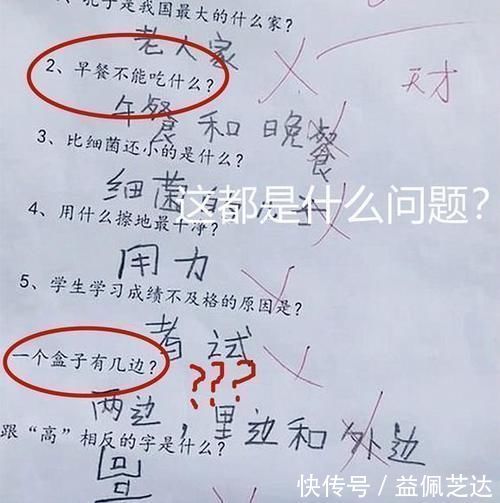 孔子是我国最大的什么家?
老人家
2、早餐不能吃什么?
天才
午餐和晚餐
3、比细菌还小的是什么?
细菌的儿子
这都是什么问题?
4、用什么擦地最干净?
用力
5、学生学习成绩不及格的原因是?
考试
一个盒子有几边?
???
两边,里边和外边
跟“高”相反的字是什么?
快传号 / 益佩芝达